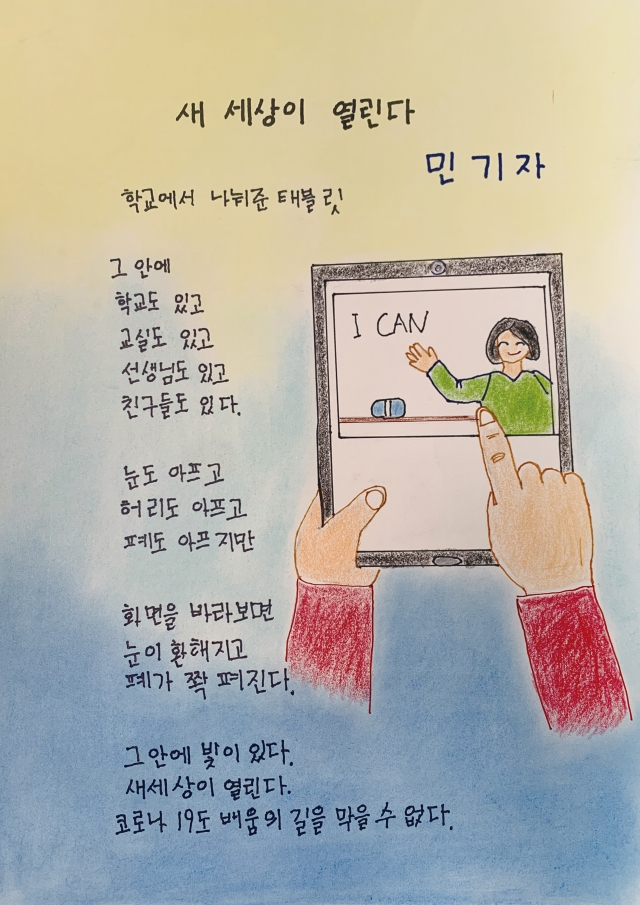 새 세상이 열린다
민기자
학교에서 나눠준 태블릿
그 안에
학교도 있고
교실도 있고
선생님도 있고
친구들도 있다.
눈도 아프고
허리도 아프고
폐도 아프지만
화면을 바라보면
눈이 환해지고
폐가 쫙 펴진다.
그안에 빛이 있다.
새세상이 열린다.
코로나 19도 배움의 길을 막을 수 없다.
I CAN